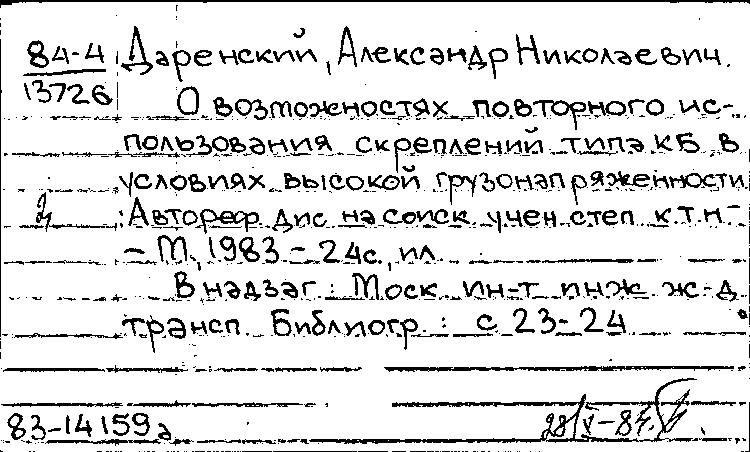 84-4 Даренский, Александр Николаевич.
13726
О возможностях повторного ис-
пользования скреплений типа КБ в
условиях высокой грузонапряженности
: Автореф дис на соиск учен степ к.т.н-
- М., 1983 - 24с., ил
В надзаг : Моск ин-т инж ж-д
трансп Библиогр : с 23-24
83-14159а 28/V-84.